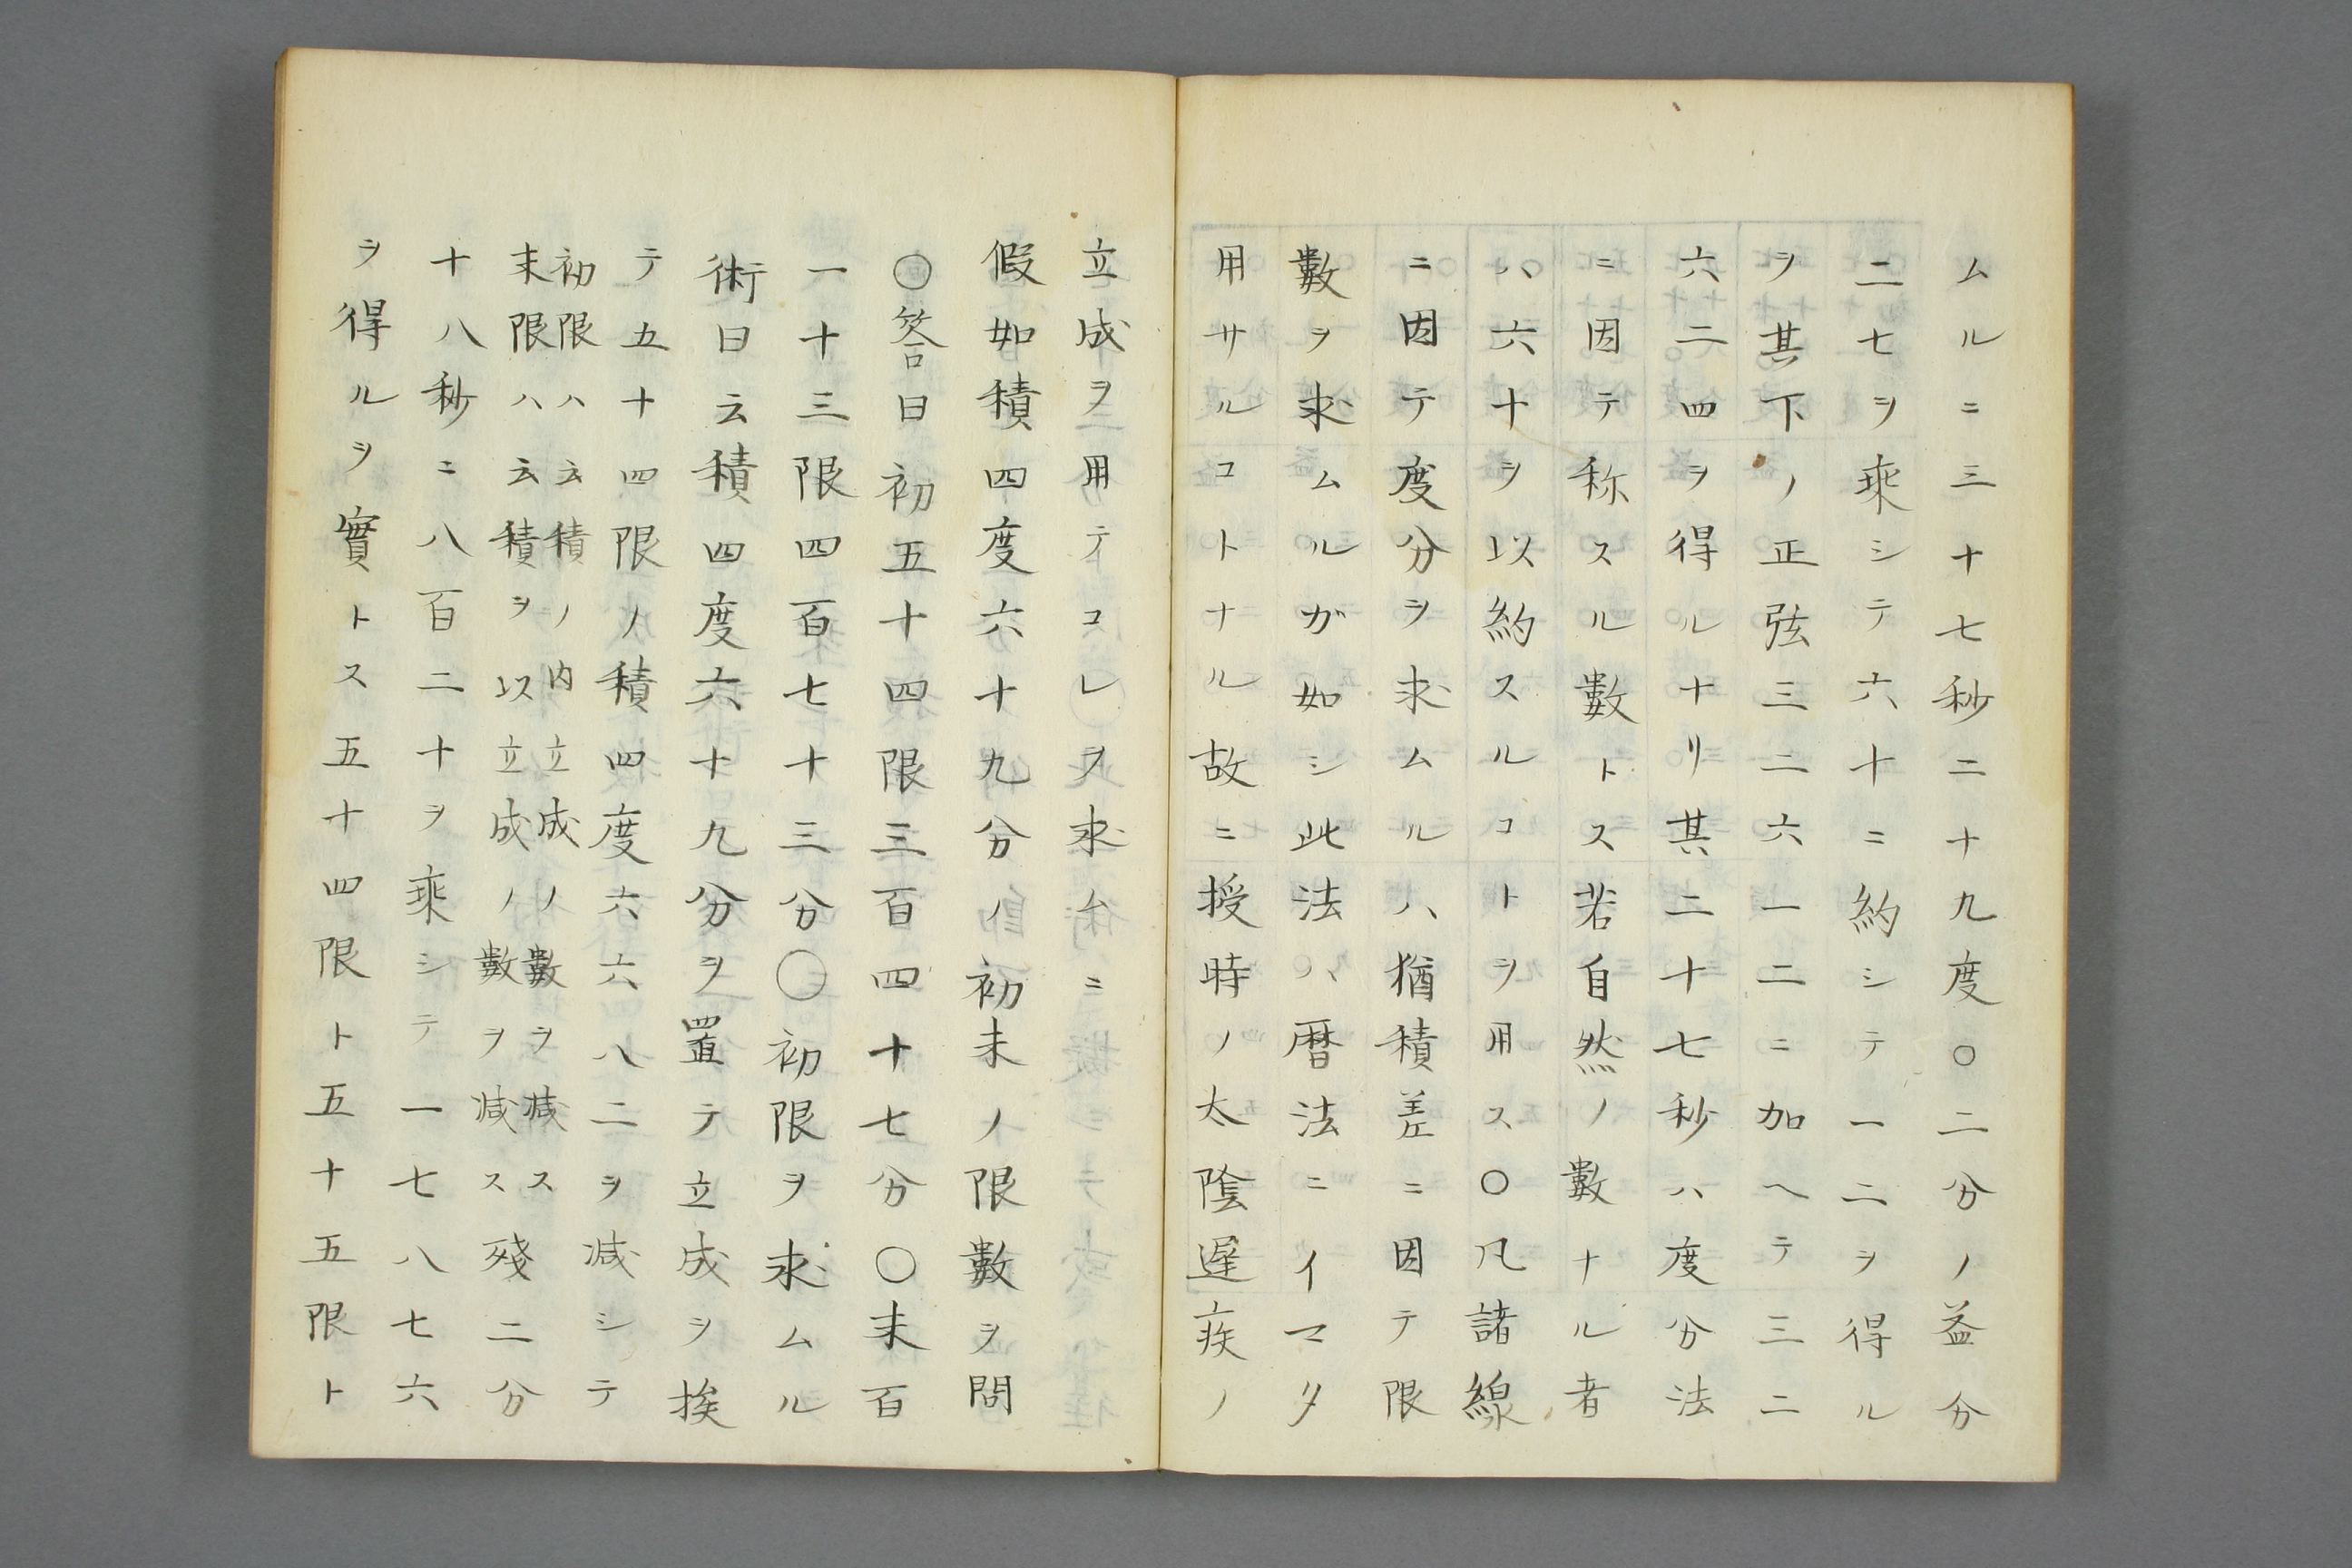 ムルニ三十七秒二十九度〇二分ノ益分
二七ヲ乘シテ六十ニ約シテ一二ヲ得ル
ヲ其下ノ正弦三二六一二ニ加ヘテ三二
六二四ヲ得ルナリ其二十七秒ハ度分法
ニ因テ称スル數トス若自然ノ數ナル者
ハ六十ヲ以約スルコトヲ用ス〇凡諸線
ニ因テ度分ヲ求ムルハ猶積差ニ因テ限
數ヲ求ムルガ如シ此法ハ暦法ニイマタ
用サルコトナル故ニ授時ノ太陰遲疾ノ
立成ヲ用テコレヲ求ム
假如積四度六十九分ノ初末ノ限數ヲ問
〇答曰初五十四限三百四十七分〇末百
一十三限四百七十三分〇初限ヲ求ムル
術曰云積四度六十九分ヲ置テ立成ヲ挨
テ五十四限ノ積四度六六八二ヲ減シテ
初限ハ云積ノ内立成ノ數ヲ減ス
末限ハ云積ヲ以立成ノ數ヲ減ス殘二分
十八秒ニ八百二十ヲ乘シテ一七八七六
ヲ得ルヲ實トス五十四限ト五十五限ト